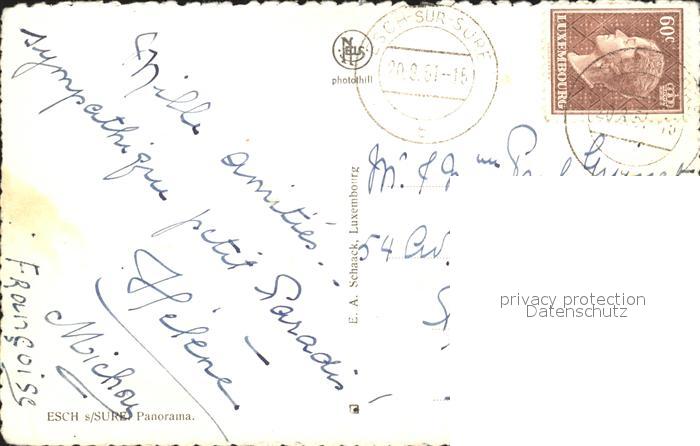 Mille amitiés.
sympathique petit Paradis
Hélène
Michou
Françoise
ESCH s/SURE, Panorama.
NELS
photothill
E. A. Schaack, Luxembourg
ESCH-SUR-SURE
20.8.51-16
60c
LUXEMBOURG
Mr. et Mme Paul
54 Av.
privacy protection
Datenschutz